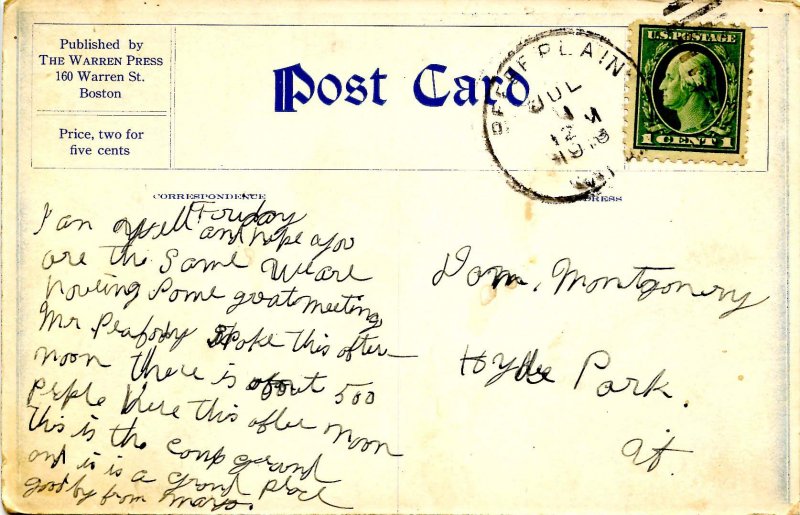 Published by
THE WARREN PRESS
160 Warren St.
Boston
Price, two for
five cents
Post Card
PLAIN
JUL
12 M
U.S. POSTAGE
1 CENT 1
CORRESPONDENCE
ADDRESS
Friday
I am well and hope you
are the same We are
some great meeting
Mr Peabody spoke this after
noon there is about 500
people here this after noon
this is the camp grand
and is is a grand place
good by from
Dom. Montgomery
Hyde Park.